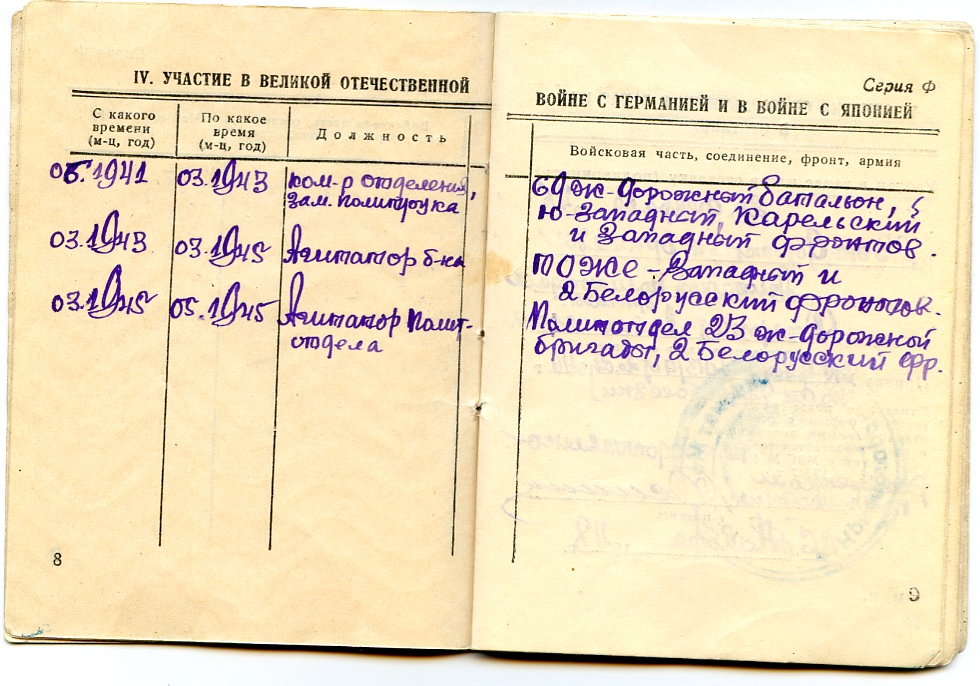 IV. УЧАСТИЕ В ВЕЛИКОЙ ОТЕЧЕСТВЕННОЙ
С какого времени (м-ц, год)
По какое время (м-ц, год)
Должность
06.1941 03.1943 ком-р отделения,
зам. политрука
03.1943 03.1945 Агитатор б-на
03.1945 05.1945 Агитатор Полит-
отдела
8
Серия Ф
ВОЙНЕ С ГЕРМАНИЕЙ И В ВОЙНЕ С ЯПОНИЕЙ
Войсковая часть, соединение, фронт, армия
69 ж-дорожный батальон,
Ю-Западный, Карельский
и Западный фронтов.
ТО ЖЕ - Западный и
2 Белорусский фронтов.
Политотдел 23 ж-дорожной
бригады, 2 Белорусский фр.
9